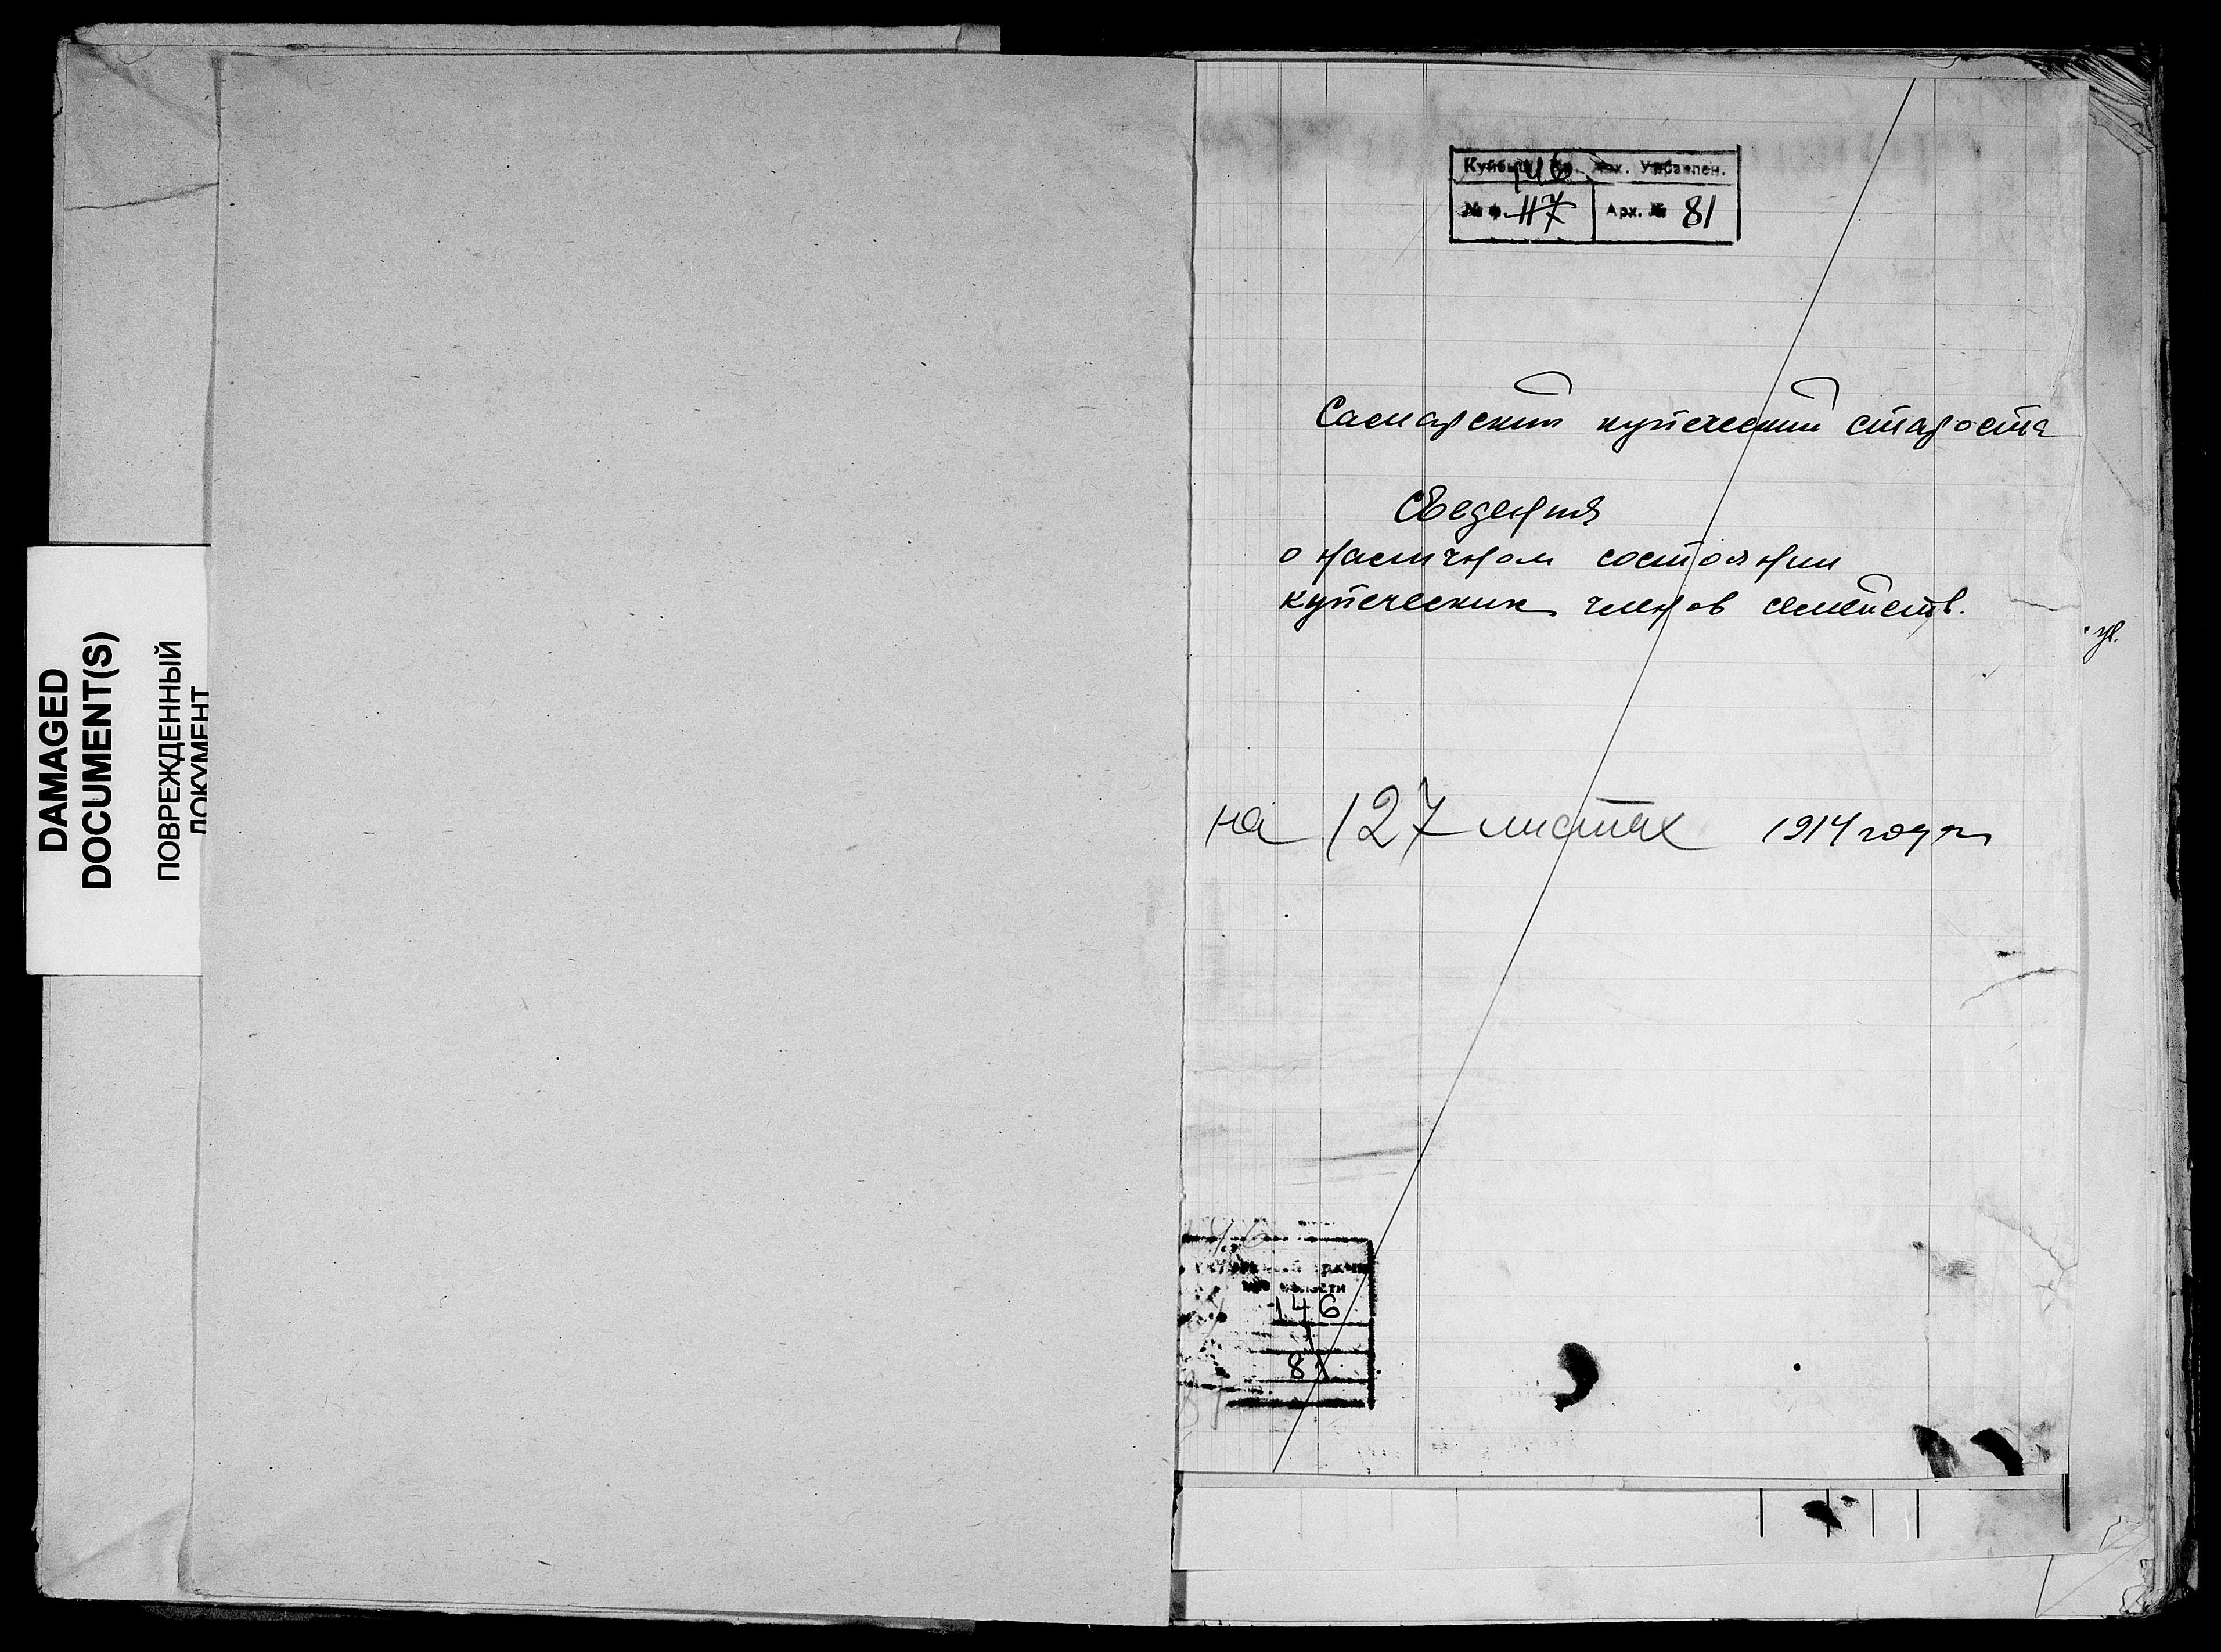 DAMAGED
DOCUMENT(S)
ПОВРЕЖДЕННЫЙ
ДОКУМЕНТ
146
№ ф. 117 Арх. № 81
Самарский купеческий староста
Сведения
о наличном состоянии
купеческих членов семейств.
на 127 листах 1914 года
146
1
81